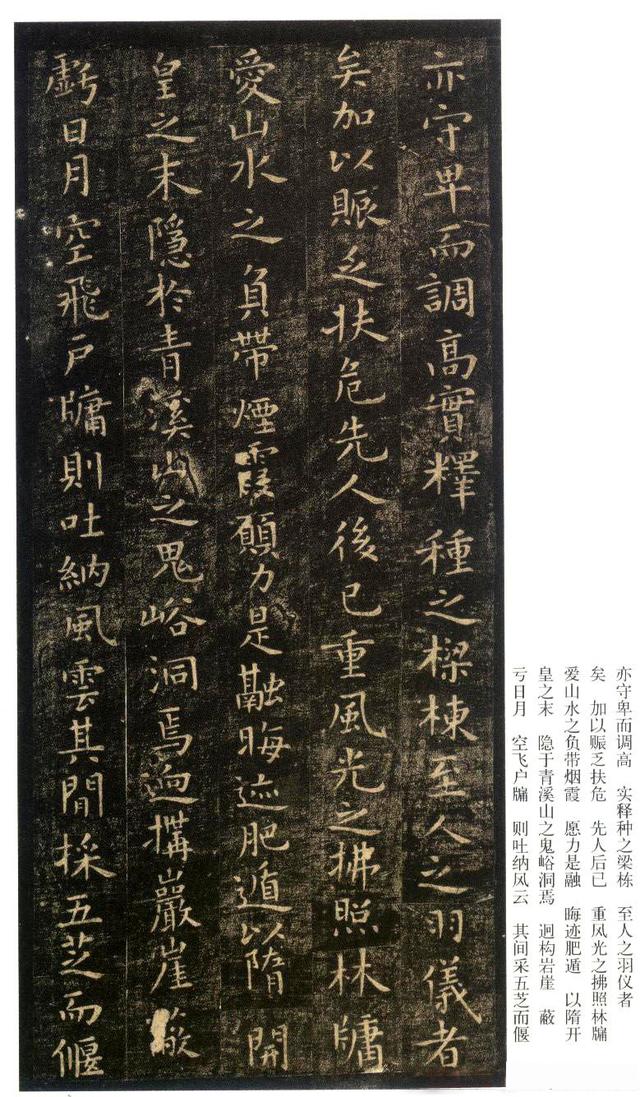 亦守卑而調高實釋種之樑棟至人之羽儀者
矣加以賑乏扶危先人後已重風光之拂照林牗
愛山水之負帶煙霞願力是融晦迹肥遁以隋開
皇之末隱於青溪山之鬼峪洞焉迥搆巖崖蔽
虧日月空飛戶牗則吐納風雲其間採五芝而偃
亦守卑而调高 实释种之梁栋 至人之羽仪者
矣 加以赈乏扶危 先人后已 重风光之拂照林牖
爱山水之负带烟霞 愿力是融 晦迹肥遁 以隋开
皇之末 隐于青溪山之鬼峪洞焉 迥构岩崖 蔽
亏日月 空飞户牖 则吐纳风云 其间采五芝而偃